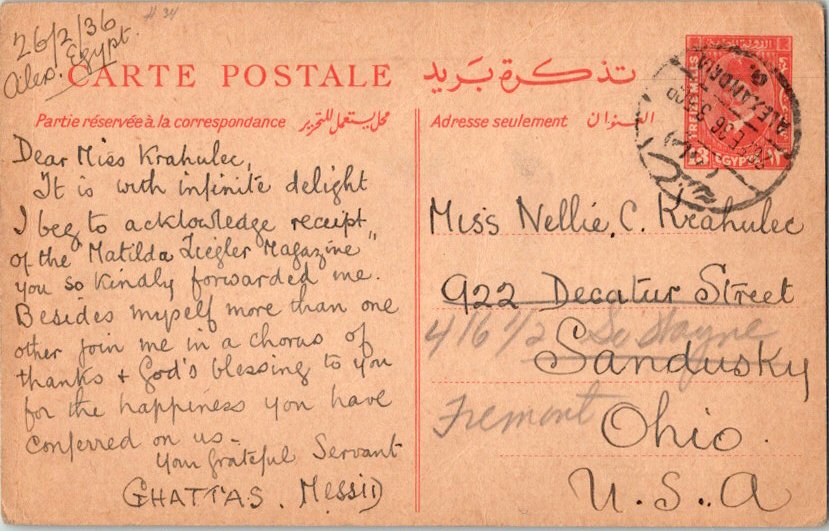 26/2/36
Alex. Egypt.
# 34
CARTE POSTALE
تذكرة بريد
Partie réservée à la correspondance
محل يستعمل للتحرير
Adresse seulement
العنوان
Dear Miss Krahulec,
It is with infinite delight
I beg to acklowledge receipt
of the "Matilda Ziegler Magazine"
you so kindly forwarded me.
Besides myself more than one
other join me in a chorus of
thanks + God's blessing to you
for the happiness you have
conferred on us -
Your grateful Servant
GHATTAS. MessiD
Miss Nellie. C. Krahulec
922 Decatur Street
416 1/2 So Wayne
Sandusky
Fremont
Ohio.
U.S.A
ALEXANDRIA
EGYPTE